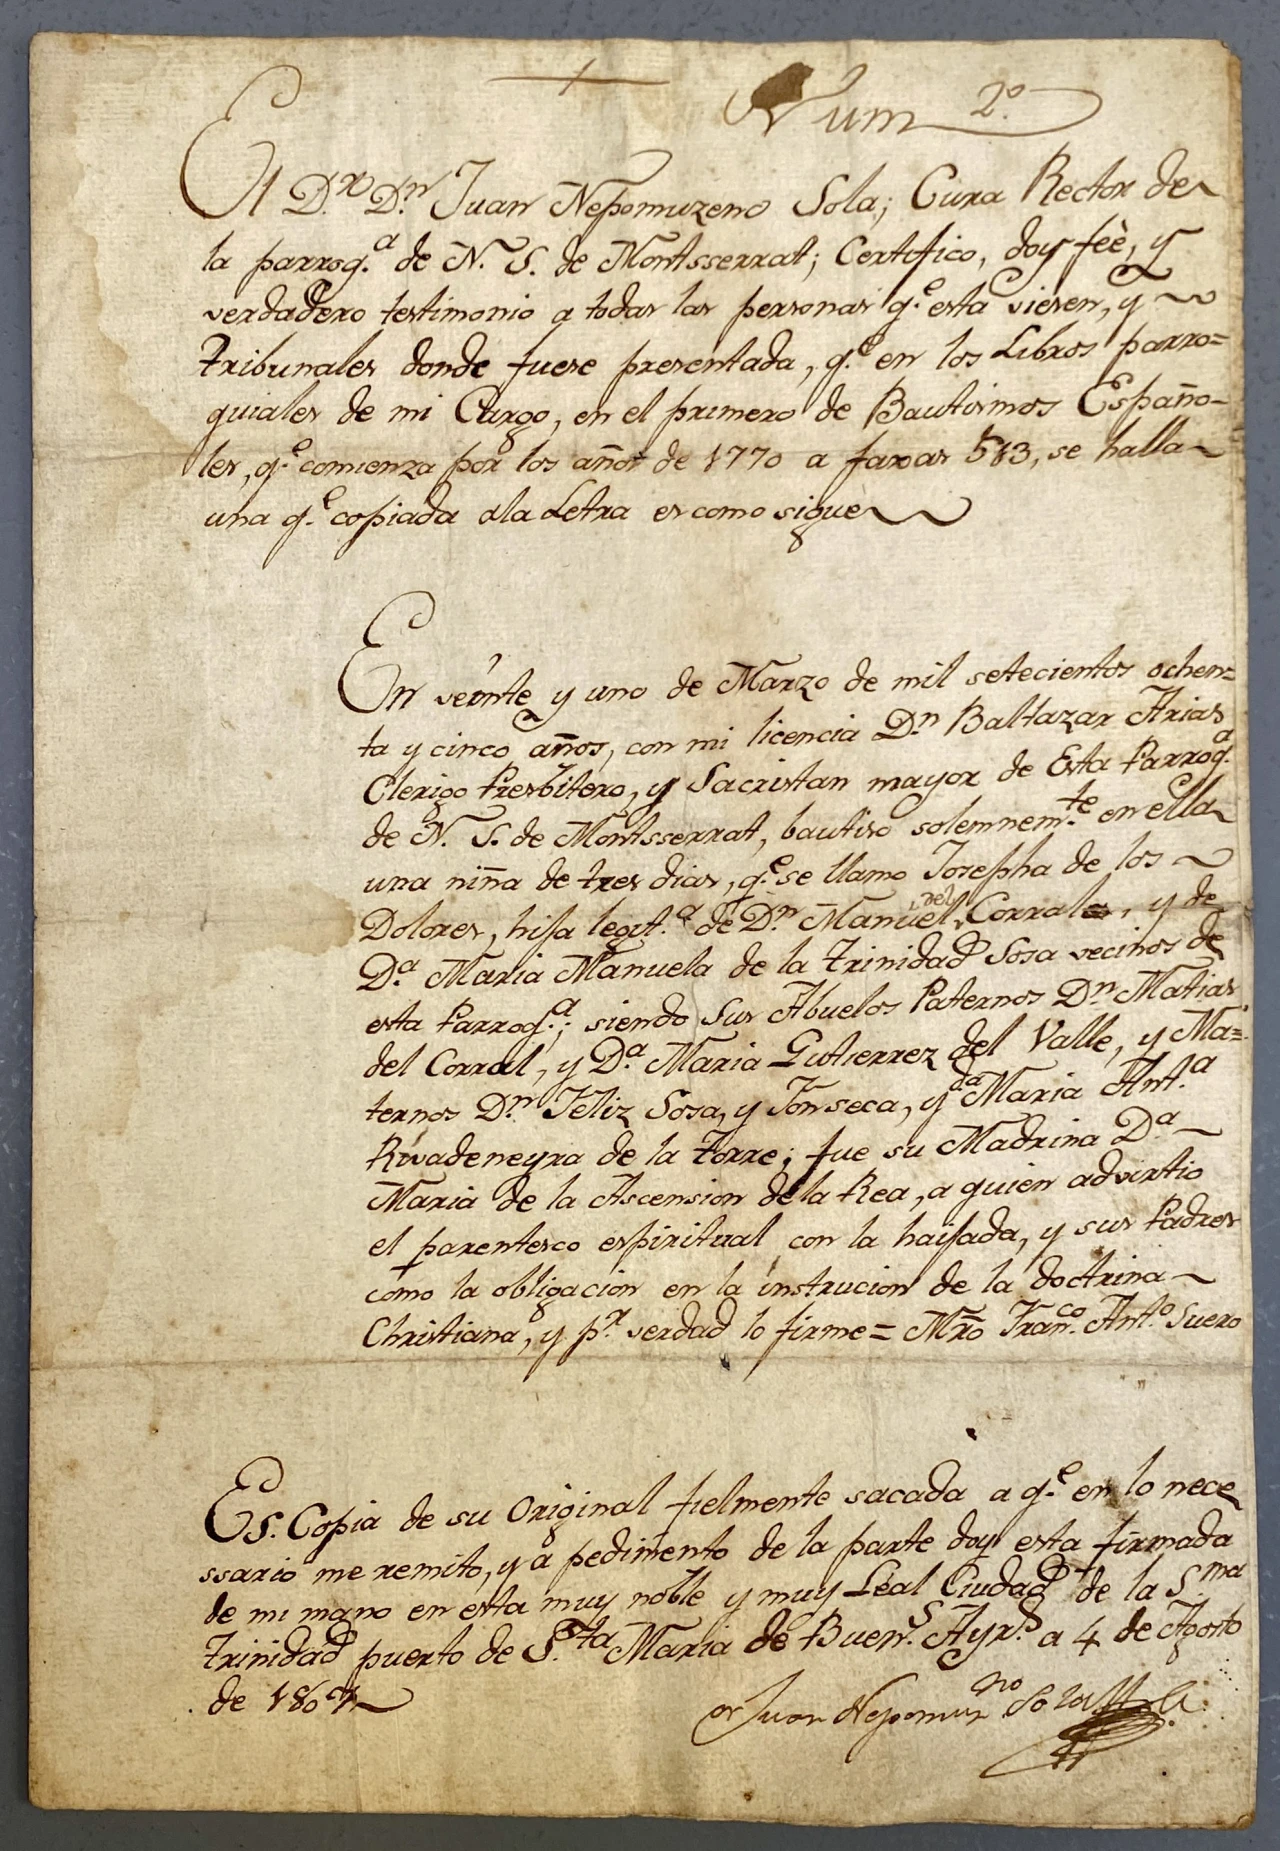 Num 2.º
El D.r D.n Juan Nepomuzeno Sola; Cura Rector de
la parroq.a de N. S. de Montsserrat; Certifico, doy feè, y
verdadero testimonio a todas las personas q.e esta vieren, y
Tribunales donde fuere presentada, q.e en los Libros parro=
quiales de mi Cargo, en el primero de Bautismos Españo-
les, q.e comienza por los años de 1770 a faxas 513, se halla
una q.e copiada ala Letra es como sigue
En veinte y uno de Marzo de mil setecientos ochen=
ta y cinco años, con mi licencia D.n Baltazar Arias
Clerigo Presbitero, y Sacristan mayor de Esta Parroq.a
de N. S. de Montsserrat, bautiso solemnem.te en ella
una niña de tres dias, q.e se llamo Josepha de los
Dolores, hija legit.a de D.n Manuel del Corral, y de
D.a Maria Manuela de la Trinidad Sosa vecinos de
esta Parroq.a; siendo sus Abuelos Paternos D.n Matias
del Corral, y D.a Maria Gutierrez del Valle, y Ma=
ternos D.n Feliz Sosa, y Fonseca, y da Maria Ant.a
Rivadeneyra de la Torre; fue su Madrina D.a
Maria de la Ascension de la Rea, a quien advirtio
el parentesco espiritual con la haijada, y sus Padres
como la obligacion en la instrucion de la doctrina
Christiana, y p.r verdad lo firme = Mro Fran.co Ant.o Suero
Es. Copia de su Original fielmente sacada a q.e en lo nece
ssario me remito, y a pedimento de la parte doy esta firmada
de mi mano en esta muy noble y muy Leal Ciudad de la S.ma
Trinidad puerto de S.ta Maria de Buen.s Ayr.s a 4 de Agosto
de 1807
Juan Nepomuz.no Sola